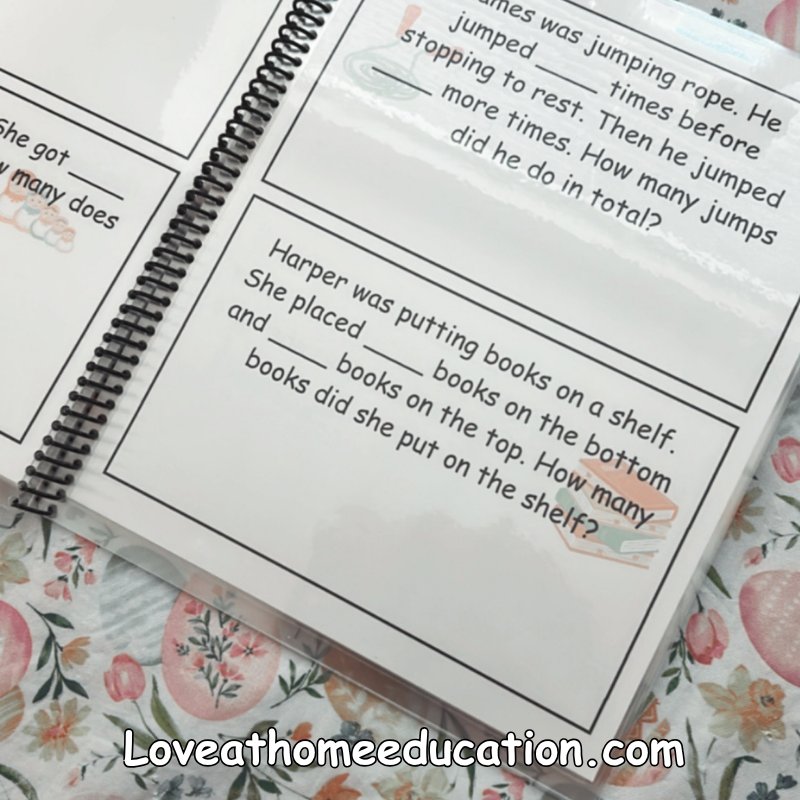 She got ____
many does
was jumping rope. He
jumped ____ times before
stopping to rest. Then he jumped
____ more times. How many jumps
did he do in total?
Harper was putting books on a shelf.
She placed ____ books on the bottom
and ____ books on the top. How many
books did she put on the shelf?
Loveathomeeducation.com